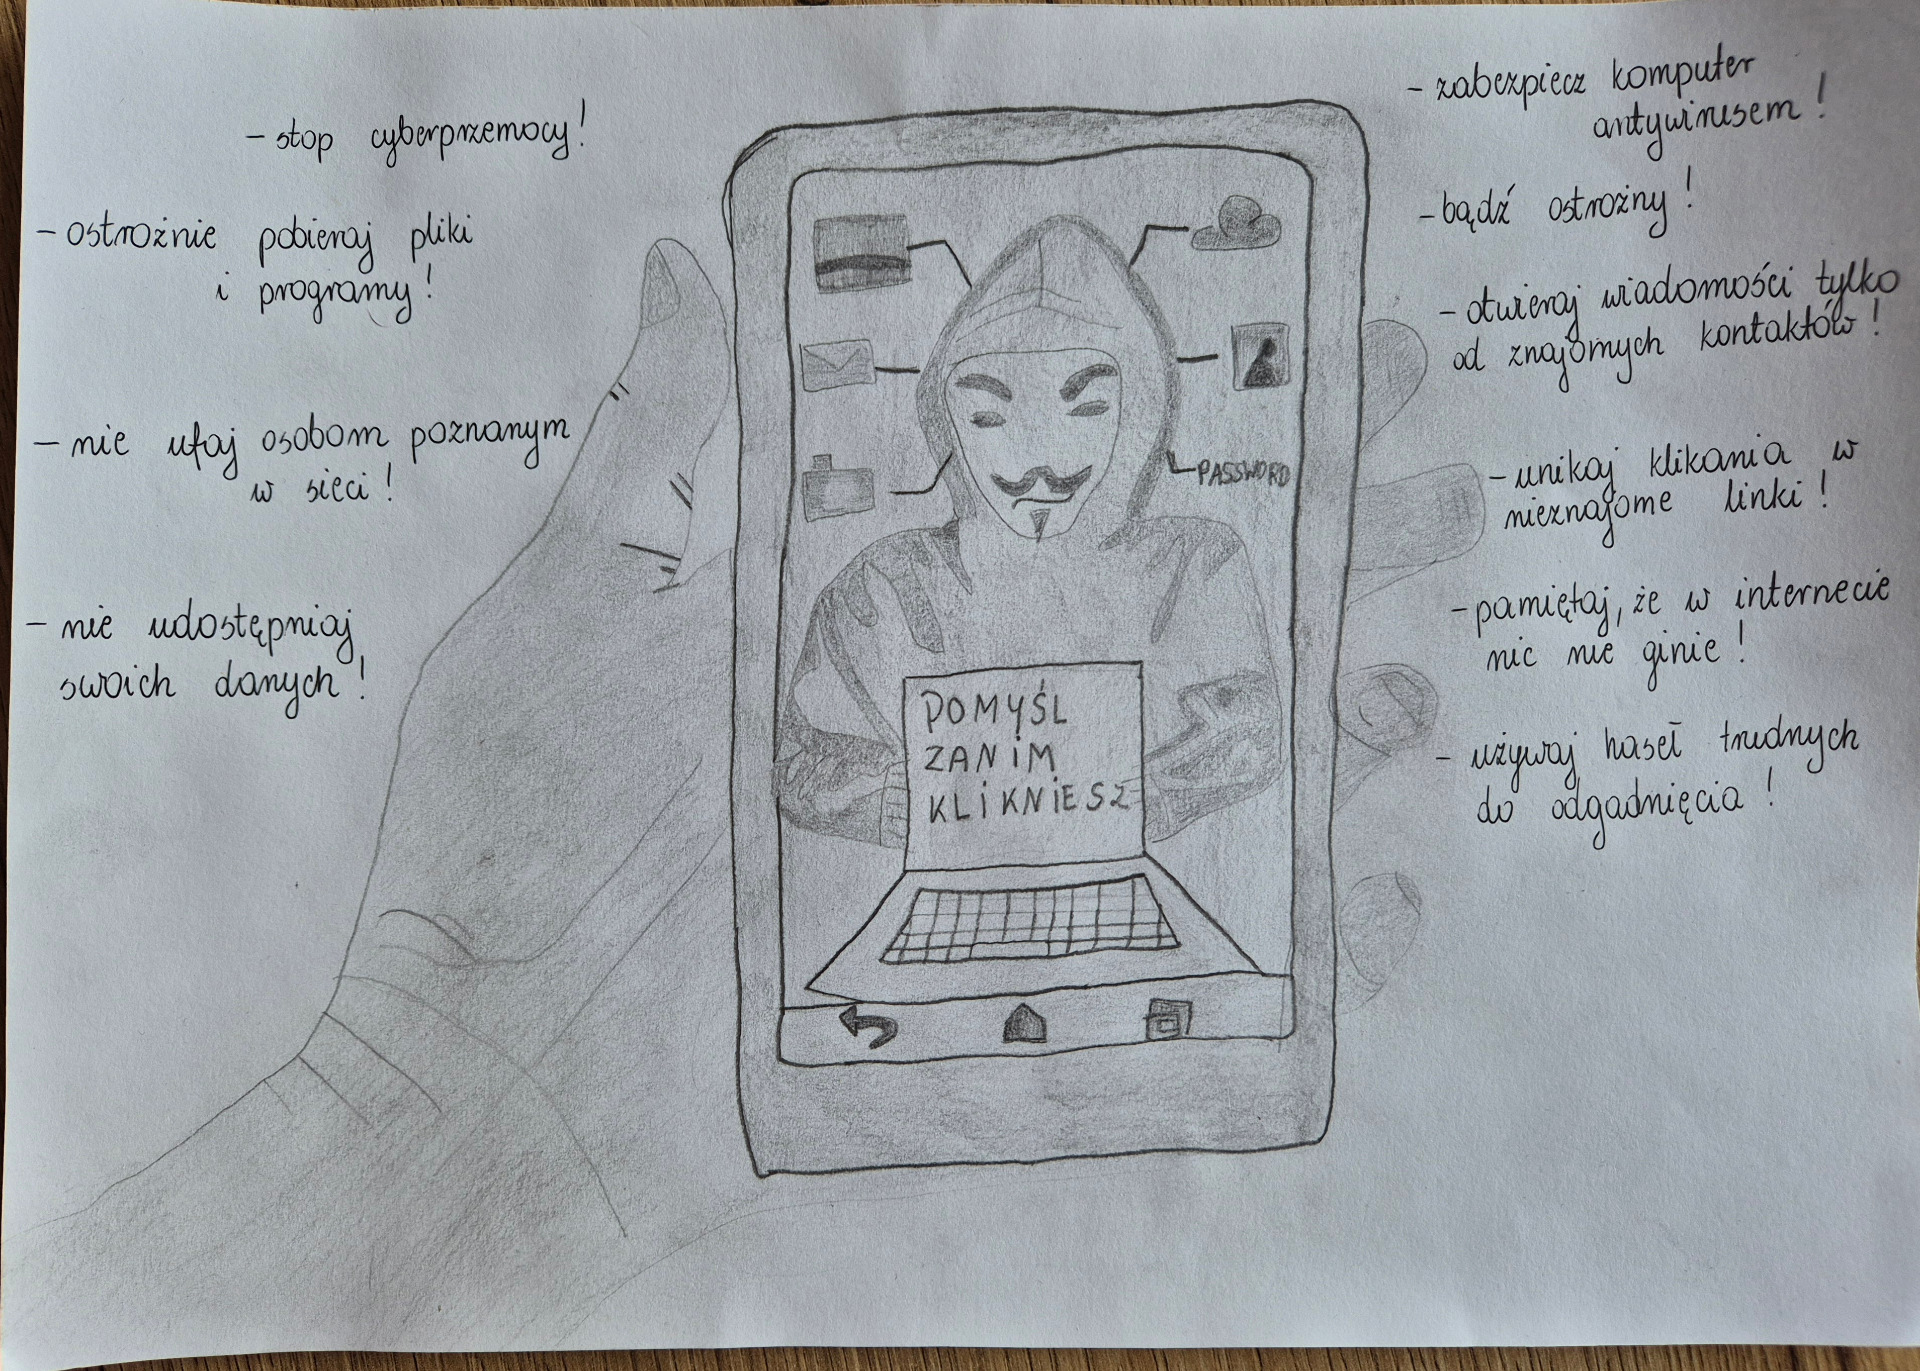 - stop cyberprzemocy!
- ostrożnie pobieraj pliki
i programy!
- nie ufaj osobom poznanym
w sieci!
- nie udostępniaj
swoich danych!
PASSWORD
POMYŚL
ZANiM
KLiKNiESZ
- zabezpiecz komputer
antywirusem!
- bądź ostrożny!
- otwieraj wiadomości tylko
od znajomych kontaktów!
- unikaj klikania w
nieznajome linki!
- pamiętaj, że w internecie
nic nie ginie!
- używaj haseł trudnych
do odgadnięcia!